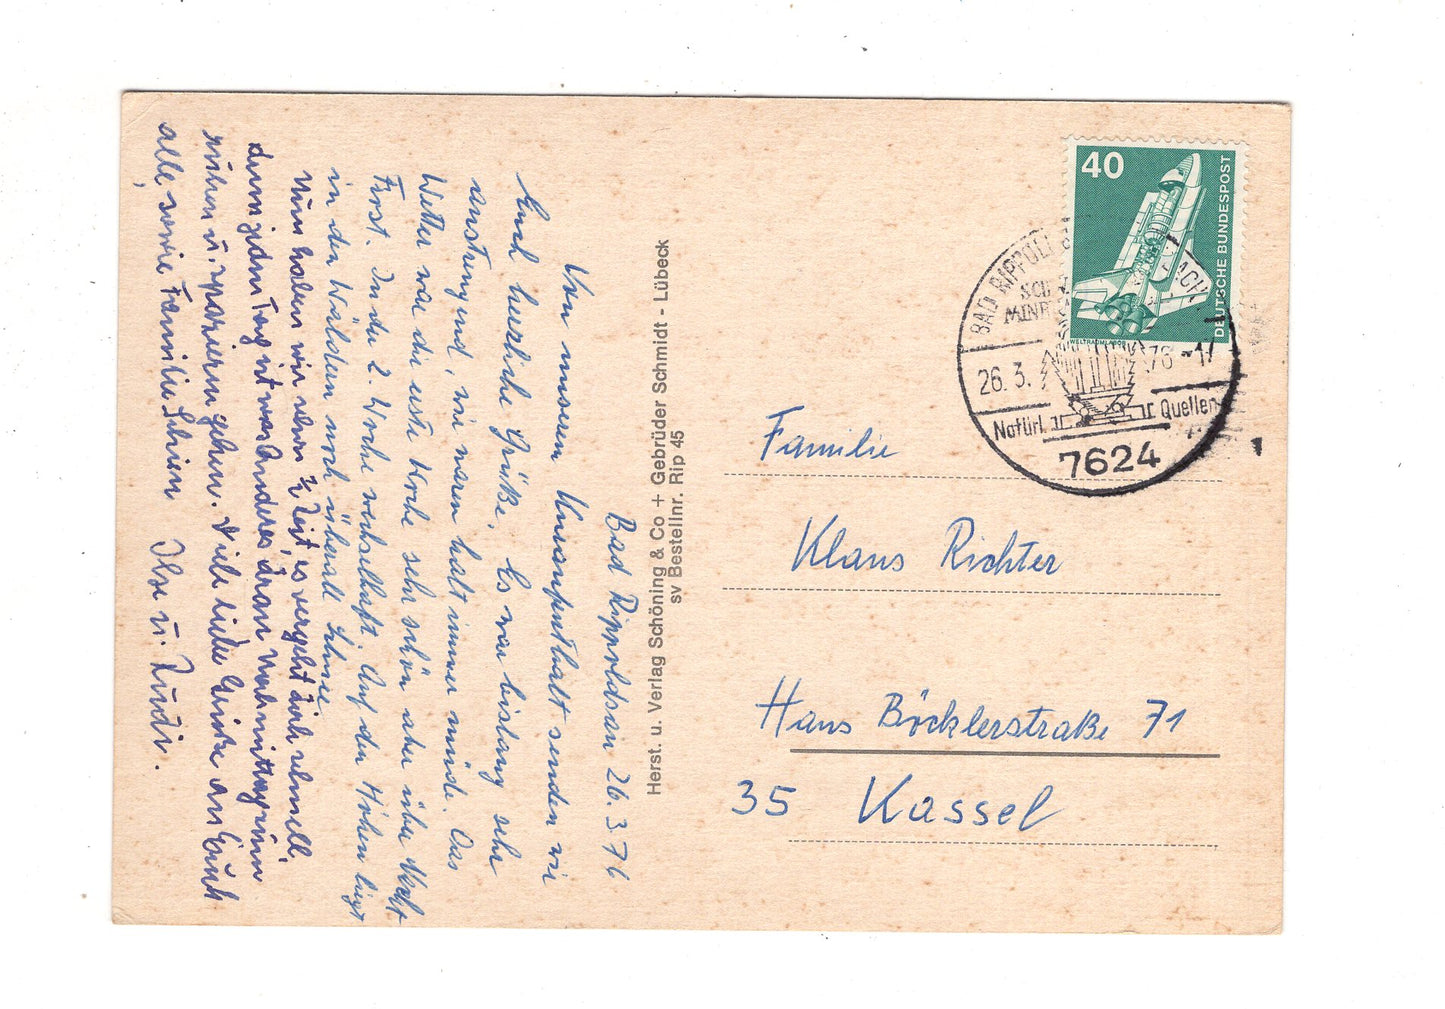 Bad Rippoldsau 26.3.76
Von unserem Kuraufenthalt senden wir
Euch herzliche Grüße. Es war bislang sehr
anstrengend, wir waren halt immer müde. Das
Wetter war die erste Woche sehr schön aber über Nacht
Frost. In der 2. Woche wechselhaft. Auf den Höhen liegt
in den Wäldern noch überall Schnee.
Nun haben wir schon ½ Zeit, es vergeht doch schnell,
denn jeden Tag ist was Anderes dran. Nachmittag
ruhen u. spazieren gehen. Viele liebe Grüße an Euch
alle, sowie Familie
Ilse u. Rudi.
Herst. u. Verlag Schöning & Co + Gebrüder Schmidt - Lübeck
sv Bestellnr. Rip 45
40
DEUTSCHE BUNDESPOST
WELTRAUMLABOR
BAD RIPPOL
ACH
MINE
26.3.
76
Natürl.
Quellen
7624
Familie
Klaus Richter
Hans Böcklerstraße 71
35 Kassel